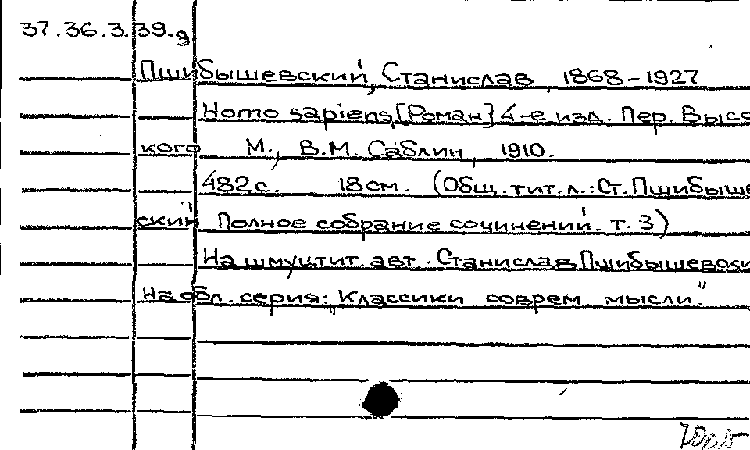 37.36.3.39.g
Пшибышевский, Станислав, 1868-1927
Homo sapiens, [Роман] 4-е изд. Пер. Высо
кого М., В.М. Саблин, 1910.
482 с. 18 см. (Общ. тит. л.: Ст. Пшибыше
ский Полное собрание сочинений. т. 3)
На шмуцтит. авт. Станислав Пшибышевски
На обл. серия: "Классики соврем мысли."